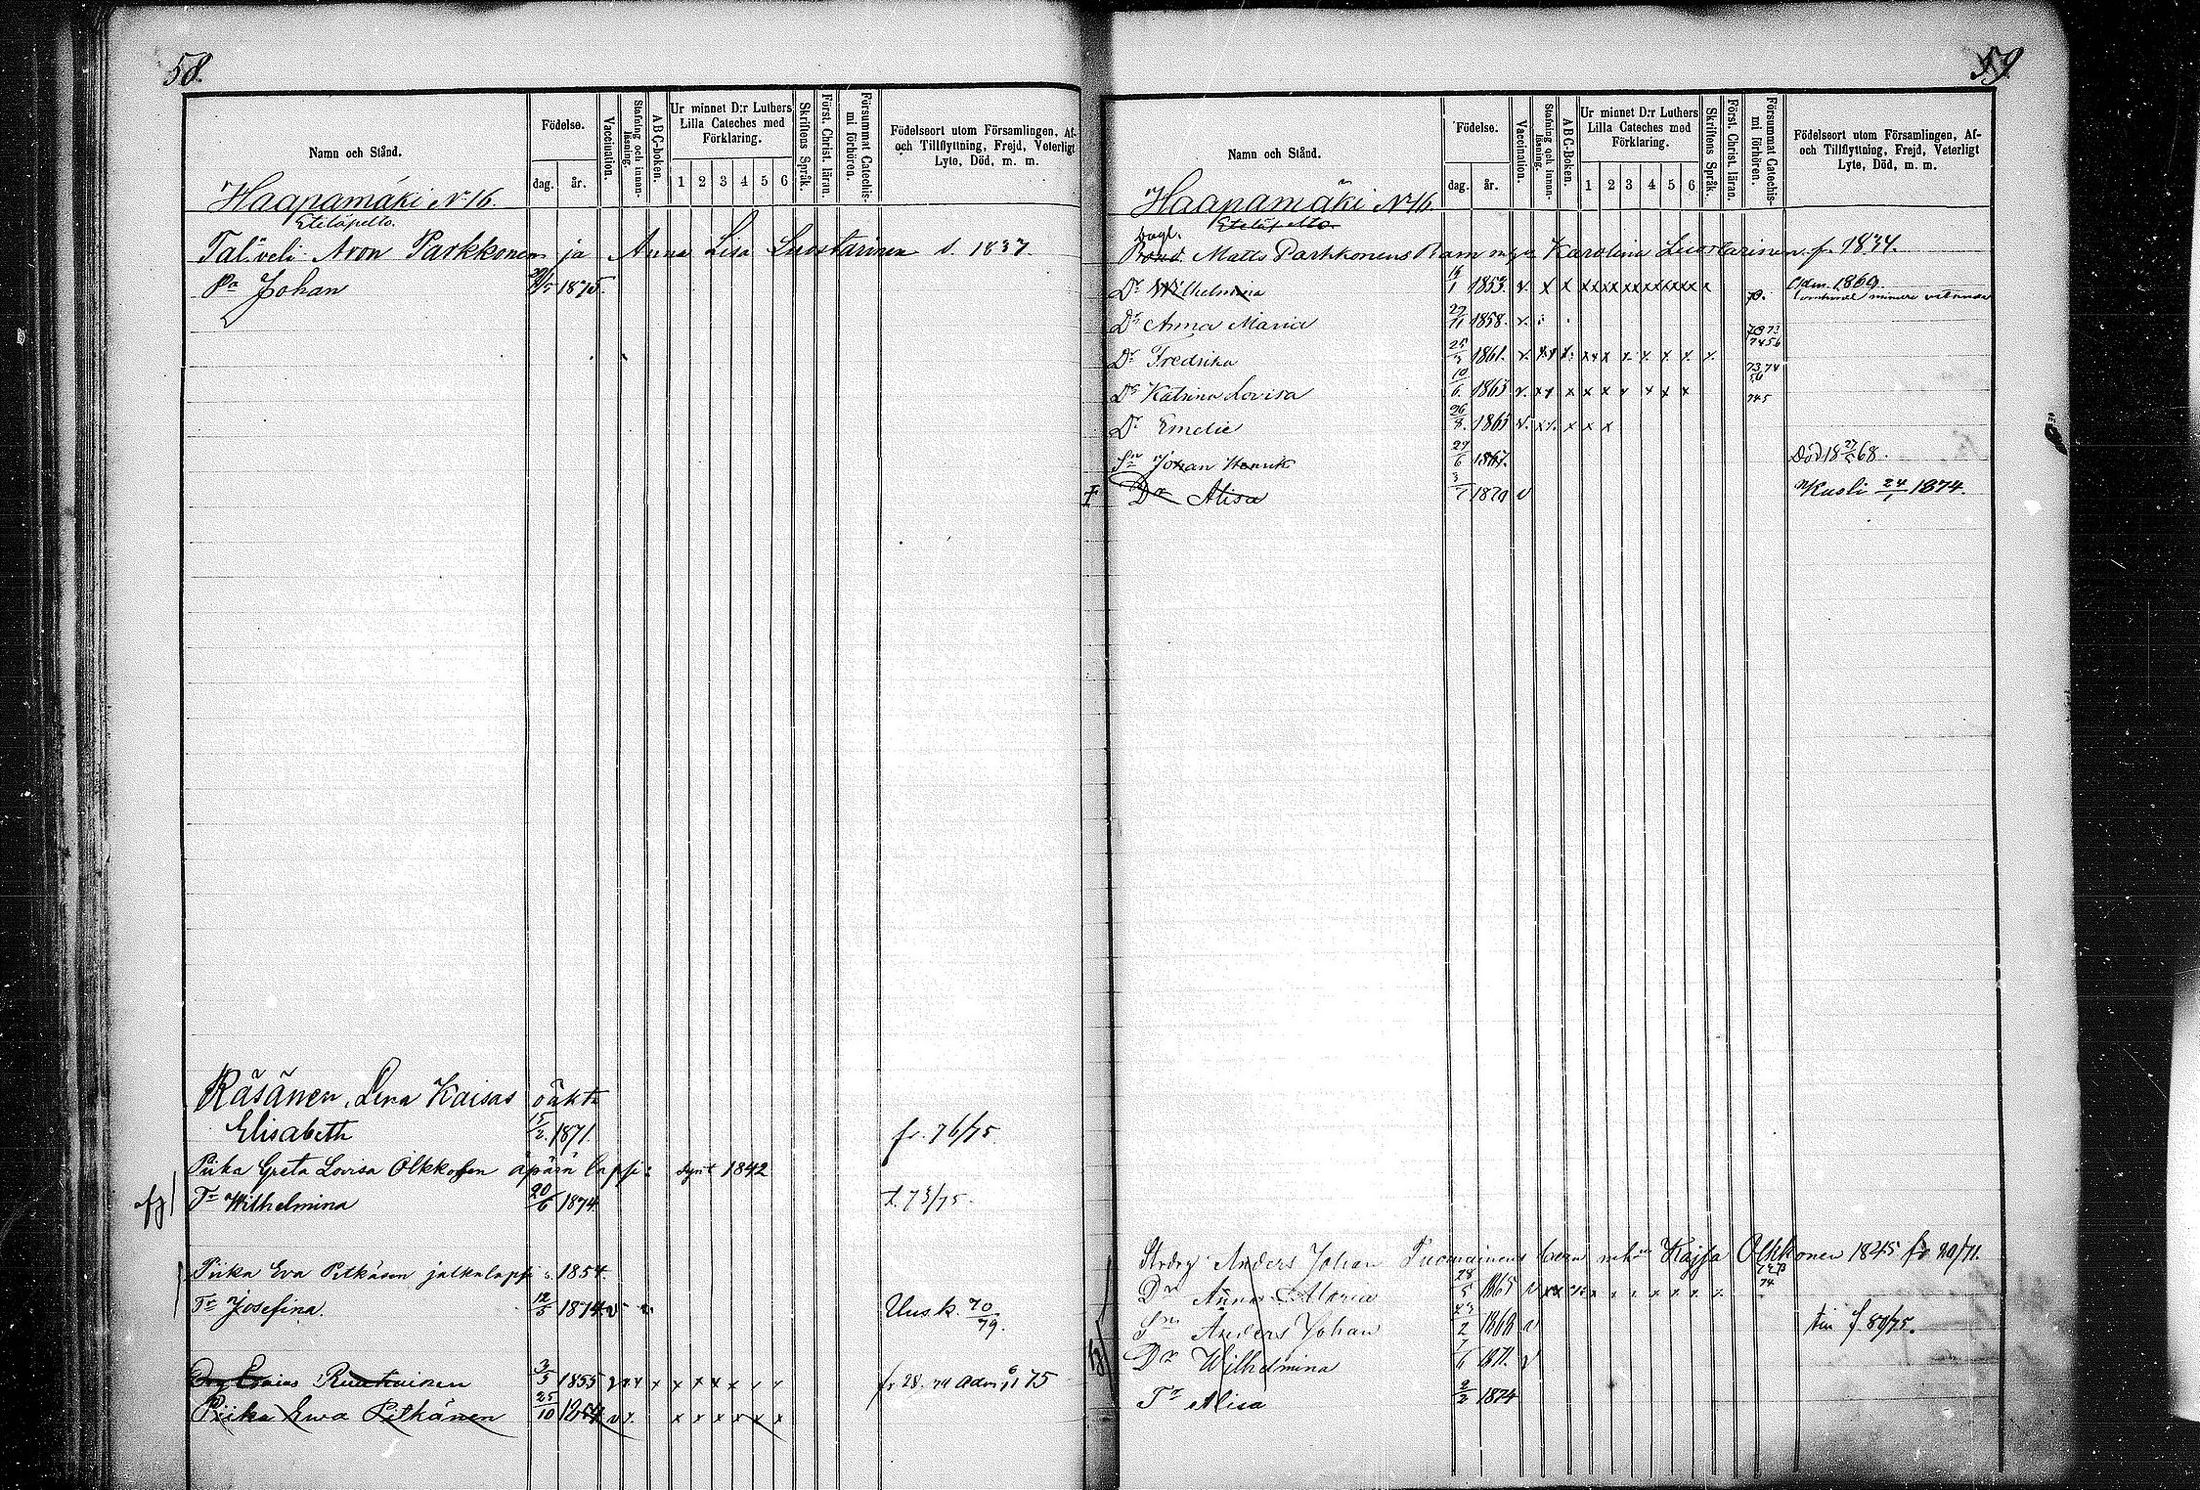 58.
Namn och Stånd.
Födelse.
dag. år.
Vaccination.
Stafning och innanläsning.
ABC-boken.
Ur minnet D:r Luthers Lilla Cateches med Förklaring.
1 2 3 4 5 6
Skriftens Språk.
Först. Christ. läran.
Försummat Catechismi förhören.
Födelseort utom Församlingen, Af- och Tillflyttning, Frejd, Veterligt Lyte, Död, m. m.
Haapamäki No 16.
Eteläpelto.
Tal. veli Aron Parkkonen ja Anna Lisa Luostarinen s. 1837.
Pa Johan 1875.
Räsänen, Lena Kaisas oäkta
Elisabeth 15/2 1871. fr. 76/75
Piika Greta Lovisa Olkkonen äpärä lapsi: synt 1842
afg Tr Wilhelmina 20/6 1874 t. 73/75.
Piika Eva Pitkäsen jalkalapsi s. 1854.
Tr Josefina. 12/5 1874 v Uusk. 70/79.
Ruuskainen 3/5 1855 v x x x x x x x fr 28. 74 adm 75
Piika Ewa Pitkänen 25/10 1854 v x. x x x x x x
59
Namn och Stånd.
Födelse.
dag. år.
Vaccination.
Stafning och innanläsning.
ABC-Boken.
Ur minnet D:r Luthers Lilla Cateches med Förklaring.
1 2 3 4 5 6
Skriftens Språk.
Först. Christ. läran.
Försummat Catechismi förhören.
Födelseort utom Församlingen, Af- och Tillflyttning, Frejd, Veterligt Lyte, Död, m. m.
Haapamäki No 16.
Eteläpelto
Bond. Matts Parkkonens Barn m. Karolina Luostarinen f. 1834.
Dr Wilhelmina 1853. v. x x xxxxxxxxxx x Adm. 1869.
Dr Anna Maria 1858. v.
Dr Fredrika 25/3 1861. v. x x x. x x x x. x. x. x x.
Dr Katrina Lovisa 10/6. 1863 v. x x x x x x x x x
Dr Emelie 26/8. 1865 v. x x. x x x
Sn Johan Henrik 27/6 1867. Död 18 68.
Dr Alisa 3/7 1870 v Kuoli 24/1 1874.
Anders Johan Tuomainens barn m Kajsa Olkkonen 1845 fr 20/71.
Dr Anna Maria 28/5 1865 v x x x x x x x x x x. 74
Sn Anders Johan 23/2 1868 v till f. 80/75.
Dr Wilhelmina 7/6 1871. v
Tr Alisa 2/2 1874